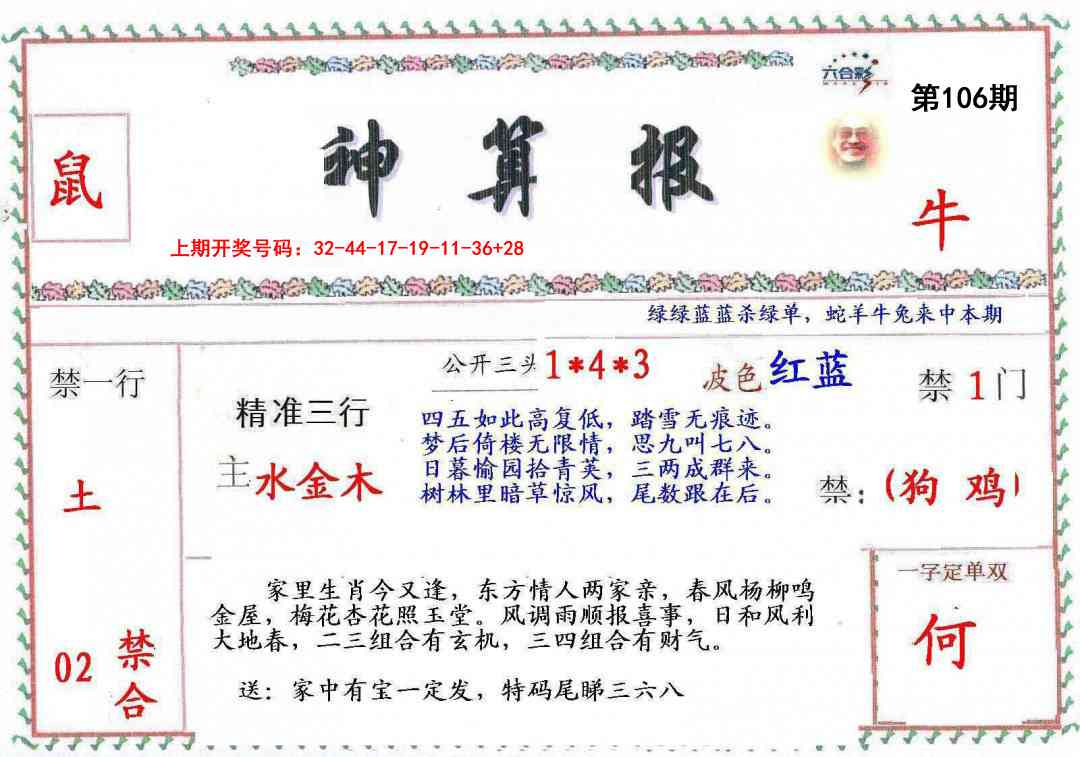 六合彩
第106期
鼠
神算报
牛
上期开奖号码：32-44-17-19-11-36+28
绿绿蓝蓝杀绿单，蛇羊牛兔来中本期
禁一行
公开三头1*4*3
波色红蓝
禁1门
精准三行
四五如此高复低，踏雪无痕迹。
梦后倚楼无限情，思九叫七八。
主水金木
日暮愉园拾青英，三两成群来。
树林里暗草惊风，尾数跟在后。
土
禁：(狗 鸡)
一字定单双
家里生肖今又逢，东方情人两家亲，春风杨柳鸣
金屋，梅花杏花照玉堂。风调雨顺报喜事，日和风利
大地春，二三组合有玄机，三四组合有财气。
何
02
禁合
送：家中有宝一定发，特码尾睇三六八